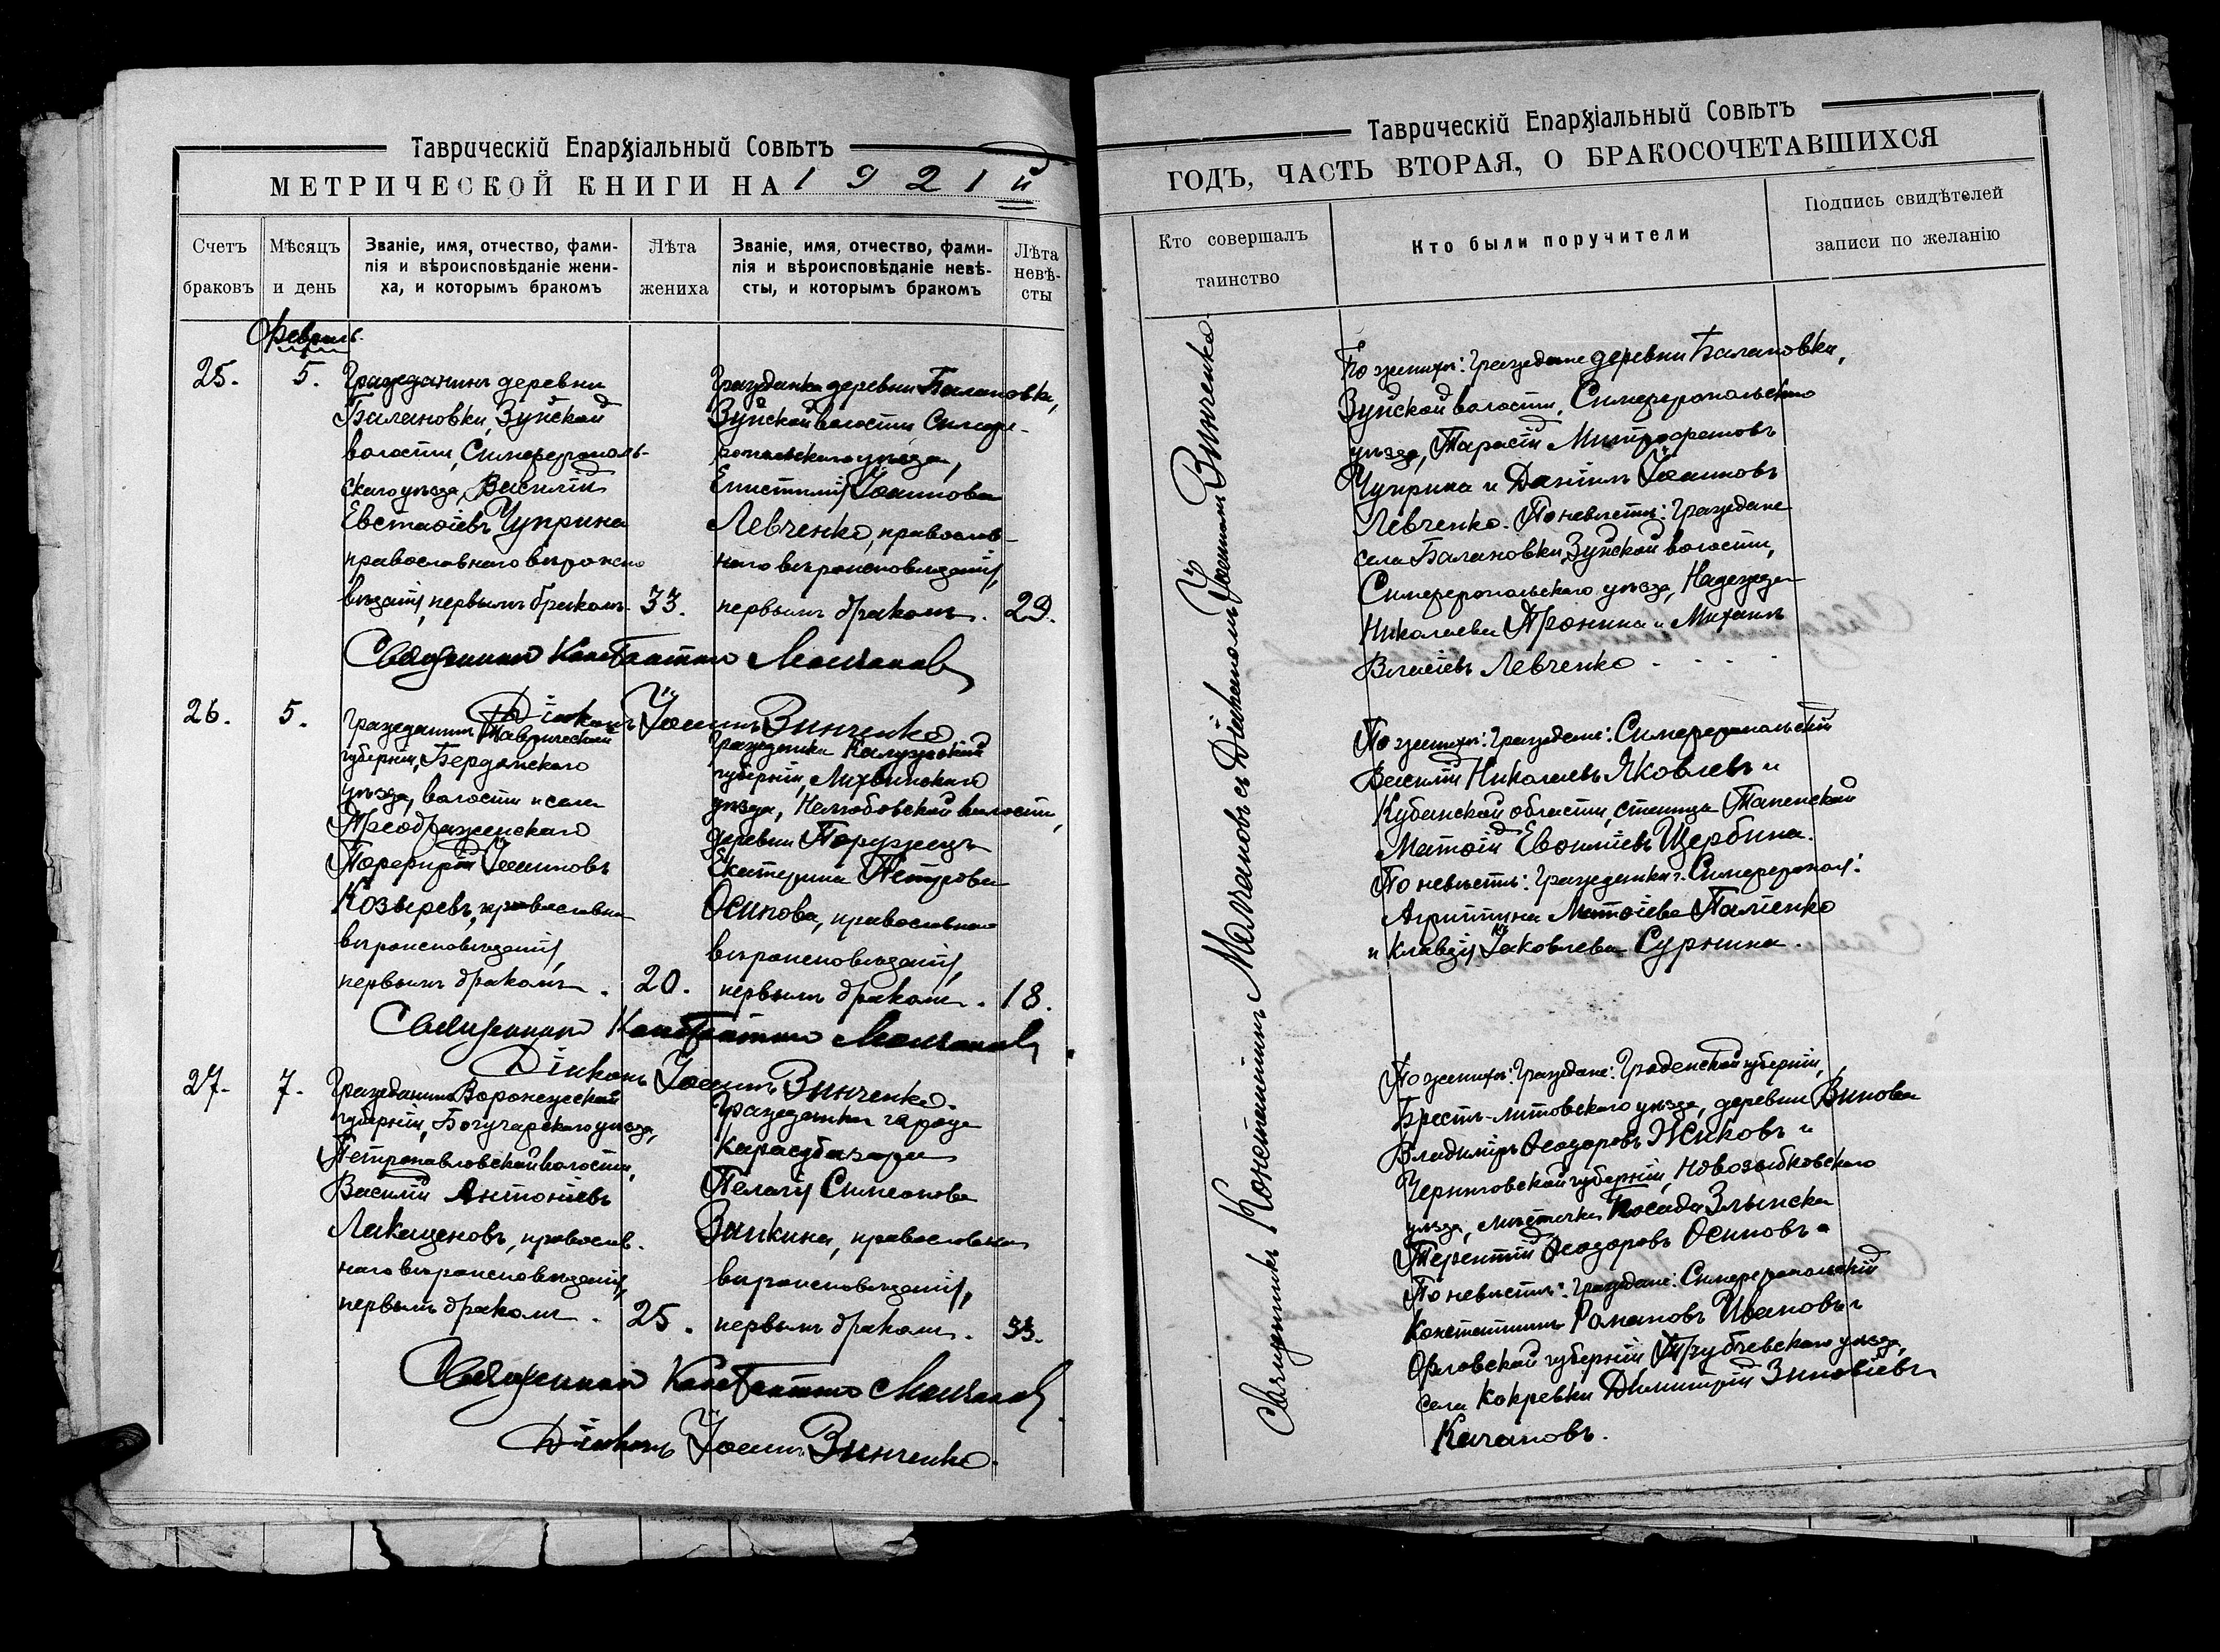 Таврическій Епархіальный Совѣтъ
МЕТРИЧЕСКОЙ КНИГИ НА 1921й
Счетъ браковъ
Мѣсяцъ и день
Званіе, имя, отчество, фами-
лія и вѣроисповѣданіе жени-
ха, и которымъ бракомъ
Лѣта жениха
Званіе, имя, отчество, фами-
лія и вѣроисповѣданіе невѣ-
сты, и которымъ бракомъ
Лѣта
невѣ-
сты
Февраль.
25.
5.
Гражданинъ деревни
Балановки, Зуйской
волости, Симферополь-
скаго уѣзда, Василій
Евстаѳіевъ Чуприна
православнаго вѣроиспо
вѣданія, первымъ бракомъ.
33.
Гражданка деревни Балановки,
Зуйской волости Симфе-
ропольскаго уѣзда,
Епистимія Іоаннова
Левченко, православ-
наго вѣроисповѣданія,
первымъ бракомъ.
29.
Священникъ Константинъ Молчановъ
Діаконъ Іоаннъ Зинченко.
26.
5.
Гражданинъ Таврической
губерніи, Бердянскаго
уѣзда, волости и села
Преображенскаго
Порфирій Іоанновъ
Козыревъ, православна
вѣроисповѣданія,
первымъ бракомъ.
20.
Гражданка Калужской
губерніи, Лихвинскаго
уѣзда, Нелюбовской волости,
деревни
Екатерина Петрова
Осипова, православнаго
вѣроисповѣданія,
первымъ бракомъ.
18.
Священникъ Константинъ Молчановъ
Діаконъ Іоаннъ Зинченко.
27.
7.
Гражданинъ Воронежской
губерніи, Богучарскаго уѣзда,
Петропавловской волости,
Василій Антоніевъ
Лакащеновъ, православ-
наго вѣроисповѣданія,
первымъ бракомъ.
25.
Гражданка города
Карасубазара
Пелагія Симеонова
Зинкина, православнаго
вѣроисповѣданія,
первымъ бракомъ.
33.
Священникъ Константинъ Молчановъ
Діаконъ Іоаннъ Зинченко.
Таврическій Епархіальный Совѣтъ
ГОДЪ, ЧАСТЬ ВТОРАЯ, О БРАКОСОЧЕТАВШИХСЯ
Кто совершалъ таинство
Кто были поручители
Подпись свидѣтелей
записи по желанію
Священникъ Константинъ Молчановъ съ Діакономъ Іоанномъ Зинченко.
По женихѣ: Граждане деревни Балановки,
Зуйской волости, Симферопольскаго
уѣзда, Тарасій Митрофановъ
Чуприна и Даніилъ Іоанновъ
Левченко. По невѣстѣ: Граждане
села Балановки, Зуйской волости,
Симферопольскаго уѣзда, Надежда
Николаева Пронина и Михаилъ
Власіевъ Левченко
По женихѣ: Граждане: Симферопольскій
Василій Николаевъ Яковлевъ и
Кубанской области, станица
Матѳій Евѳиміевъ Щербина.
По невѣстѣ: Гражданки г. Симферополя:
Агриппина Матѳіева
и Клавдія Іаковлева Сурнина.
По женихѣ: Граждане: Гродненской губерніи,
Брестъ-Литовскаго уѣзда, деревни Вилова
Владиміръ Ѳеодоровъ Жиковъ и
Черниговской губерніи, Новозыбковскаго
уѣзда, мѣстечка Посада Злынска
Терентій Ѳеодоровъ Осиповъ.
По невѣстѣ: Граждане: Симферопольскій
Константинъ Романовъ Ивановъ и
Орловской губерніи Трубчевскаго уѣзда,
села Кокревки Димитрій Зиновіевъ
Качановъ.